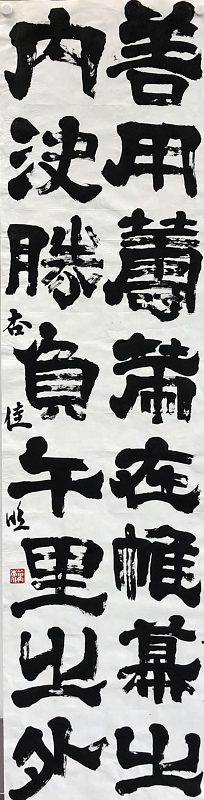 善用籌策在帷幕之
内決勝負千里之外